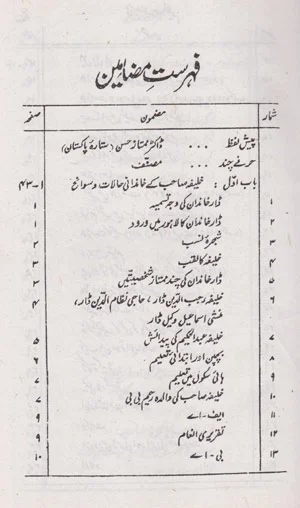 فہرستِ مضامین
شمار مضمون صفحہ
پیش لفظ ... ڈاکٹر ممتاز حسن (ستارۂ پاکستان)
حرفے چند ... مصنّف
باب اوّل : خلیفہ صاحب کے خاندانی حالات و سوانح ۱-۴۳
۱ ڈار خاندان کی وجہ تسمیہ ۱
۲ ڈار خاندان کا لاہور میں ورود ۲
۳ شجرۂ نسب ۲
۴ خلیفہ کا لقب ۳
۵ ڈار خاندان کی چند ممتاز شخصیتیں ۳
۶ خلیفہ رجب الدّین ڈار، حاجی نظام الدّین ڈار، ۴
منشی اسماعیل وکیل ڈار
۷ خلیفہ عبدالحکیم کی پیدائش ۵
۸ بچپن اور ابتدائی تعلیم ۶
۹ ہائی سکول میں تعلیم ۷
۱۰ خلیفہ صاحب کی والدہ رحیم بی بی ۷
۱۱ ایف-اے ۹
۱۲ تقریری انعام ۹
۱۳ بی-اے ۱۰